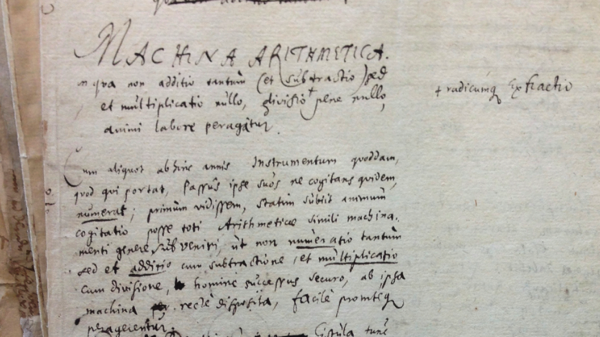 MACHINA ARITHMETICA.
in qua non additio tantum (et subtractio) sed
et multiplicatio nullo, divisio + pene nullo,
+ radicumq Extractio
animi labore peragatur.
Cum aliquot abhinc annis Instrumentum quoddam,
quod qui portat, passus ipse suos ne cogitans quidem,
numerat; primum vidissem, statim subiit animum
cogitatio posse toti Arithmeticae simili machina-
menti genere subveniri, ut non numeratio tantum
sed et additio cum subtractione, et multiplicatio
cum divisione homine successus securo, ab ipsa
machina recte disposita, facile promteq
peragerentur.